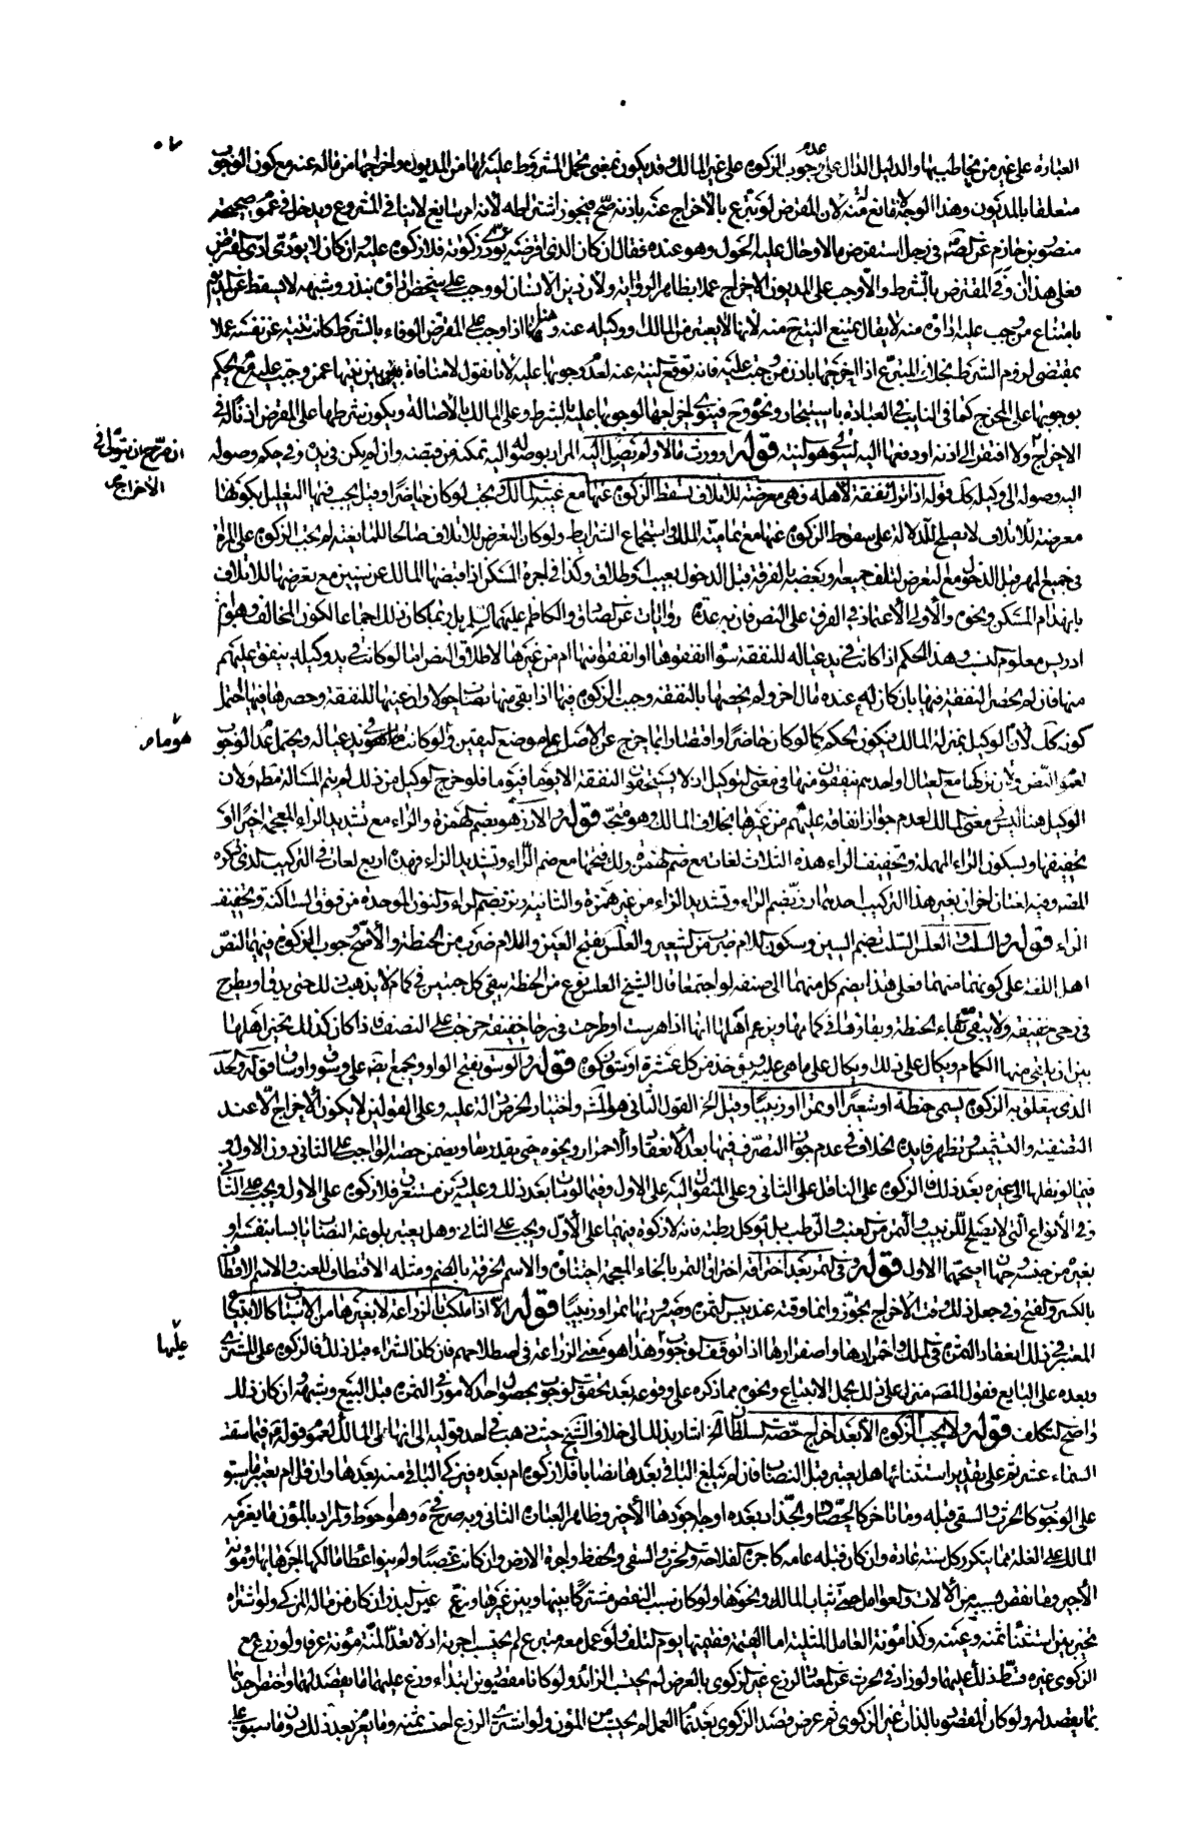 العبادة على غير من يخاطب بها والدليل الدال على عدم وجوب الزكوة على غير المالك وقد يكون بمضى محمل المشروط عليه انها من المديون واخراجها من ماله عنه مع كون الوجوب
متعلقا بالمديون وهذا الوجه لا مانع منه لان المقرض لو تبرع بالاخراج عنه باذنه صح فيجوز اشتراطه لانه امر سايغ لاينافى المشروع ويدخل فى عموم صحيحة
منصور بن حازم عن الصم فى رجل استقرض مالا وحال عليه الحول وهو عنده فقال ان كان الذى اقرضه يؤدى زكوته فلا زكوة عليه وان كان لا يؤدى ادى المقترض
فعلى هذا ان وفى المقرض بالشرط والا وجب على المديون الاخراج عملا بظاهر الرواية ولان دين الانسان لو وجب على شخص اداؤه بنذر وشبهه لا يسقط عن المديون
بامتناع من وجب عليه اداؤه منه لا يقال يمتنع النية منه لانها لا يعتبر من المالك او وكيله عنه وهنا اذا وجب على المقرض الوفاء بالشرط كانت نيته عن نفسه عملا
بمقتضى لزوم الشرط بخلاف المتبرع اذا اخرجها باذن من وجبت عليه فانه توقع النية عنه لعدم وجوبها عليه لانا نقول لا منافاة بين نيتها عمن وجبت عليه مع الحكم
بوجوبها على المخرج كما فى النايب فى العبادة باستيجار ونحوه فينوى اخراجها لوجوبها عليه بالشرط وعلى المالك بالاصالة ويكون شرطها على المقرض اذنا له فى
الاخراج ولا افتقر الى اذنه او دفعها اليه لينوى هو النية قوله او ورث مالا ولم يصل اليه المراد بوصوله اليه تمكنه من قبضه وان لم يكن فى يده وفى حكم وصوله
ان صرح ان يتولى فى
الاخراج صح
اليه وصوله الى وكيله قوله اذا ترك نفقة لاهله فهى معرضة للاتلاف تسقط الزكوة عنها مع غيبة المالك وتجب لو كان حاضرا وقيل يجب فيها التعليل بكونها
معرضة للاتلاف لا يصلح للدلالة على سقوط الزكوة عنها مع تمامية الملك واستجماع الشرايط ولو كان التعرض للاتلاف صالحا للمانعية لم تجب الزكوة على المراة
فى جميع المهر قبل الدخول مع التعرض لتلف جميعه وبعضه بالفرقة قبل الدخول بعيب او طلاق وكذا فى اجرة المسكن اذا قبضها المالك عن سنين مع تعرضها للاتلاف
بانهدام المسكن ونحوه والاولى الاعتماد فى الفرق على النص فان به عدة روايات عن الصادق والكاظم عليهما السلام بل ربما كان ذلك اجماعا لكون المخالف وهو ابن
ادريس معلوم النسب وهذا الحكم اذا كانت فى يد عياله للنفقة سواء انفقوها او انفقوا منها ام من غيرها لاطلاق النص اما لو كانت فى يد وكيله ينفق عليهم
منها فان لم يحضر النفقة فيها بان كان له عنده مال اخر ولم يخصها بالنفقة وجبت الزكوة فيها اذا بقى منها نصاب حولا وان عينها للنفقة وحصرها فيها احتمل
كونه كك لان الوكيل بمنزلة المالك فيكون الحكم كما لو كان حاضرا واقتصارا فيما خرج عن الاصل على موضع اليقين ولو كانت فى يد عياله ويحتمل عدم الوجوب
هو ما مر
لعموم النص ولان تركها مع العيال او احدهم ينفقون منها فى معنى التوكيل اذ لا يستحقون النفقة الا يوما فيوما فلو خرج الوكيل من ذلك لم يتم المسألة مط ولان
الوكيل هنا ليس فى معنى المالك لعدم جواز انفاقه عليهم من غيرها بخلاف المالك وهو متجه قوله والارز هو بضم الهمزة والراء مع تشديد الزاء المعجمة اخيرا او
تخفيفها وبسكون الراء المهملة وتخفيف الزاء هذه الثلاث لغات مع ضم الهمزة ولك فتحها مع ضم الراء وتشديد الزاء فهذه اربع لغات فى التركيب الذى ذكره
المصه وفيه لغتان اخريان بغير هذا التركيب احدهما رز بضم الراء وتشديد الزاء من غير همزة والثانية رنز بضم الراء والنون الموحدة من فوق الساكنة وتخفيف
الزاء قوله والسلت والعلس السلت بضم السين وسكون اللام ضرب من الشعير والعلس بفتح العين واللام ضرب من الحنطة والاصح وجوب الزكوة فيهما لنص
اهل اللغة على كونهما منهما فعلى هذا يضم كل منهما الى صنفه لو اجتمعا قال الشيخ العلس نوع من الحنطة يبقى كل حبتين فى كمام لا يذهب ذلك حتى يدق او يطرح
فى رحى خفيفة ولا يبقى بقاء الحنطة وبقاؤه فى كمامها ويزعم اهلها انها اذا هرست او طرحت فى رحا خفيفة خرجت على النصف فاذا كان كذلك تخير اهلها
بين ان يلقى منها الكمام ويكال على ذلك ويكال على ما هى عليه ويؤخذ من كل عشرة اوسق زكوة قوله والوسق بفتح الواو ويجمع ايضه على وسوق واوساق قوله والحد
الذى يتعلق به الزكوة يسمى حنطة او شعيرا او تمرا او زبيبا وقيل الخ القول الثانى هو المشهور واختيار الخرص دالة عليه وعلى القولين لا يكون الاخراج الا عند
التصفية والتشميس وتظهر فايدة الخلاف فى عدم جواز التصرف فيها بعد الانعقاد والاحمرار ونحوه حتى يقدرها ويضمن حصة الواجب على الثانى دون الاول و
فيما لو نقلها الى غيره بعد ذلك فالزكوة على الناقل على الثانى وعلى المنقول اليه على الاول وفيما لو مات بعد ذلك وعليه دين مستغرق فلا زكوة على الاول ويجب على الثانى
وفى الانواع التى لا يصلح للزبيب والتمر من العنب والرطب بل يؤكل رطبة فانه لا زكوة فيهما على الاول ويجب على الثانى وهل يعتبر بلوغه النصاب يابسا بنفسه او
بغيره من جنسه وجهان اصحهما الاول قوله وفى التمر بعد اخترافه اختراف التمر بالخاء المعجمة اجتناؤه والاسم الخرفة بالضم ومثله الاقتطاف للعنب والاسم القطاف
بالكسر والفتح وفى جعل ذلك وقت الاخراج تجوز وانما وقته عند يبس الثمرة وصيرورتها تمرا او زبيبا قوله الا اذا ملكت بالزراعة لا بغيرها من الاسباب كالابتياع
المعتبر فى ذلك انعقاد الثمرة فى الملك واحمرارها واصفرارها اذا توقف الوجوب وهذا هو معنى الزراعة فى اصطلاحهم فان كان الشراء قبل ذلك فالزكوة على المشترى
عليها
وبعده على البايع فقول المصه منزل على ذلك بحمل الابتياع ونحوه مما ذكره على وقوعه بعد تحقق الوجوب بحصول احد الامور فى الثمرة قبل البيع وشبهه وان كان ذلك
واضح التكلف قوله ولا يجب الزكوة الا بعد اخراج حصة السلطان الخ اشار بذلك الى خلاف الشيخ حيث ذهب فى احد قوليه الى انها على المالك لعموم قوله ص فيما سقت
السماء عشر ثم على تقدير استثنائها هل يعتبر قبل النصاب فان لم يبلغ الباقى بعدها نصابا فلا زكوة ام بعده فيزكى الباقى منه بعدها وان قل ام يعتبر ما سبق
على الوجوب كالحرث والسقى قبله وما تاخر كالحصاد والجذاذ بعده اوجه اجودها الاخير وظاهر العبارة الثانى وبه صرح فى كره وهو احوط والمراد بالمؤن ما يغرمه
المالك على الغلة مما يتكرر كل سنة عادة وان كان قبله عامه كاجرة الفلاحة والحرث والسقى والحفظ واجرة الارض وان كانت غصبا ولم ينو اعطا مالكها اجرها ومؤنة
الاجير وما نقص بسببه من الالات والعوامل حتى ثياب المالك ونحوها ولو كان سبب النقص مشتركا بينها وبين غيرها وزع عين البذر ان كان من ماله المزكى ولو اشتراه
تخير بين استثناء ثمنه وعينه وكذا مؤنة العامل المثلية اما القيمية فقيمتها يوم التلف ولو عمل معه متبرع لم يحتسب اجرته اذ لا تعد المنة مؤنة عرفا ولو زرع مع
الزكوى غيره قسط ذلك عليهما ولو زاد فى الحرث عن المعتاد لزرع غير الزكوى بالعرض لم يحتسب الزائد ولو كانا مقصودين ابتداء وزع عليهما ما يقصد لهما واختص احدهما
بما يقصد له ولو كان المقصود بالذات غير الزكوى ثم عرض قصد الزكوى بعد تمام العمل لم يحتسب من المؤن ولو اشترى الزرع احتسب ثمنه وما يغرم بعد ذلك دون ما سبق على